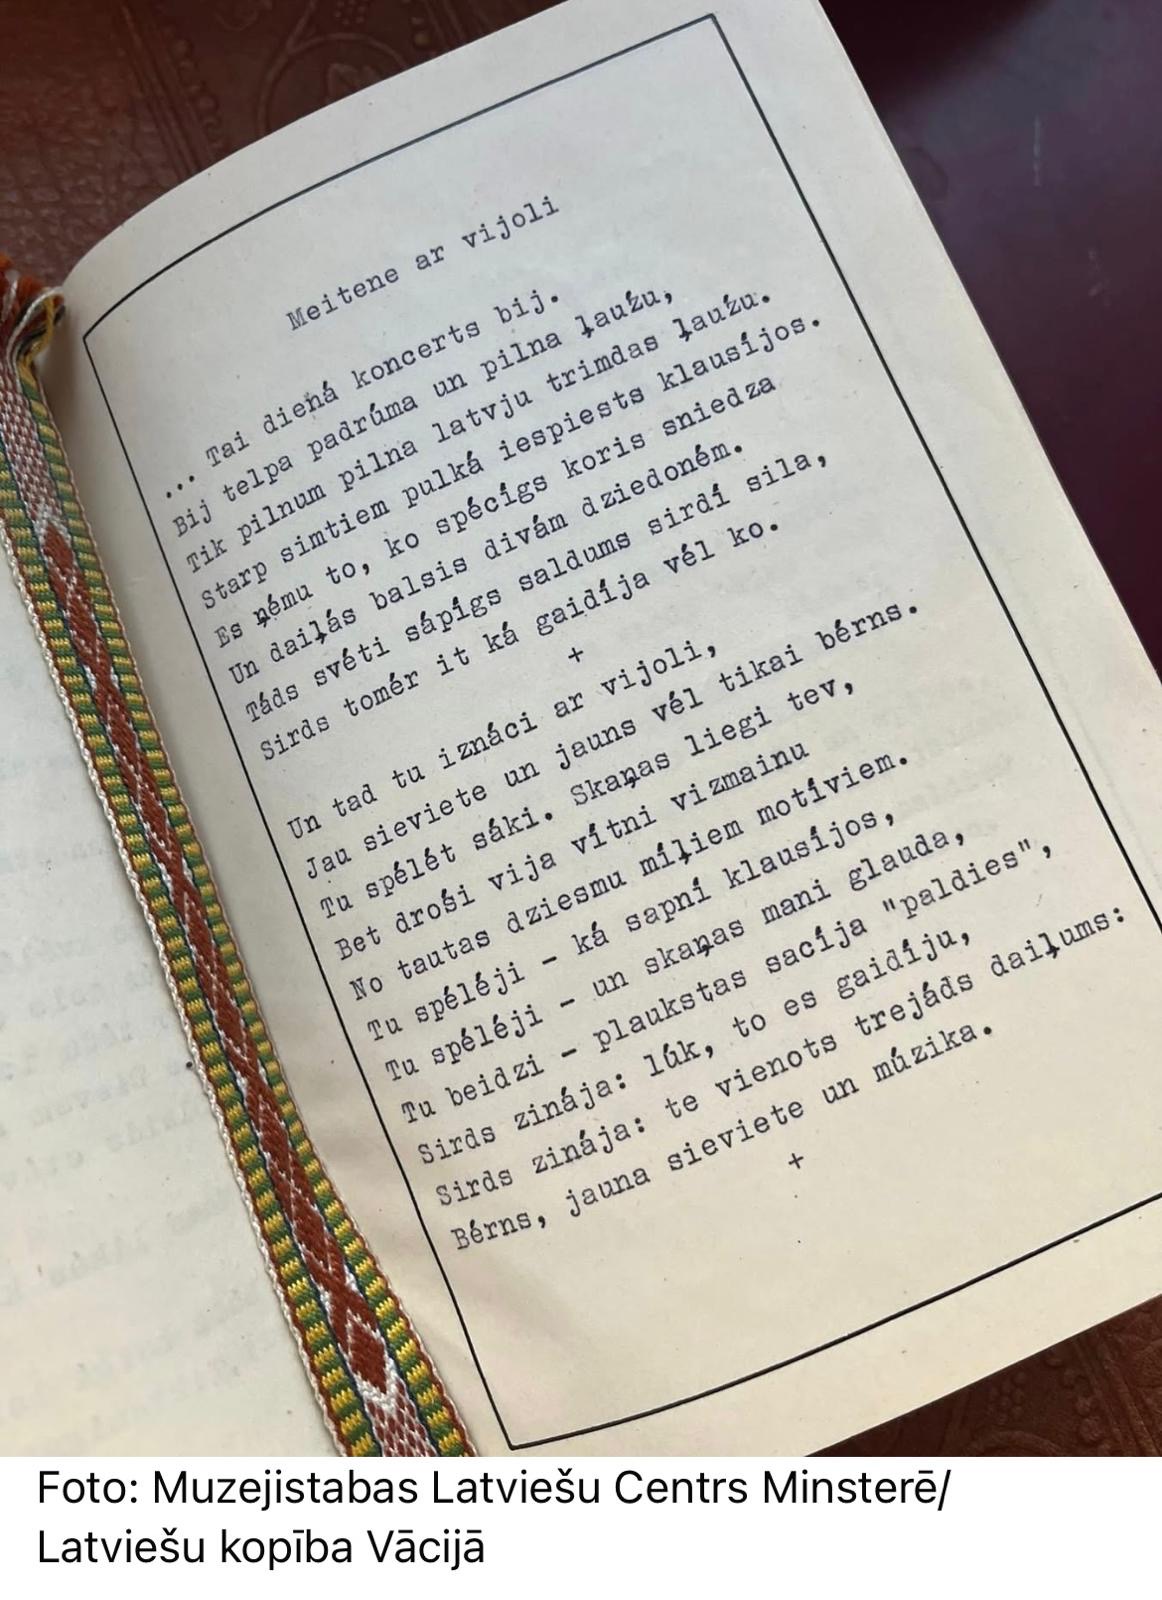 Meitene ar vijoli
... Tai diená koncerts bij.
Bij telpa padrúma un pilna ļaužu,
Tik pilnum pilna latvju trimdas ļaužu.
Starp simtiem pulká iespiests klausíjos.
Es ņému to, ko spécígs koris sniedza
Un daiļás balsis divám dziedoném.
Táds svéti sápígs saldums sirdí sila,
Sirds tomér it ká gaidíja vél ko.
+
Un tad tu iznáci ar vijoli,
Jau sieviete un jauns vél tikai bérns.
Tu spélét sáki. Skaņas liegi tev,
Bet droši vija vítni vizmainu
No tautas dziesmu míļiem motíviem.
Tu spéléji - ká sapní klausíjos,
Tu spéléji - un skaņas mani glauda,
Tu beidzi - plaukstas sacíja "paldies",
Sirds zinája: lúk, to es gaidíju,
Sirds zinája: te vienots trejáds daiļums:
Bérns, jauna sieviete un múzika.
+
Foto: Muzejistabas Latviešu Centrs Minsterē/
Latviešu kopība Vācijā